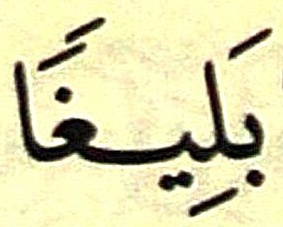 بَلِيغًا